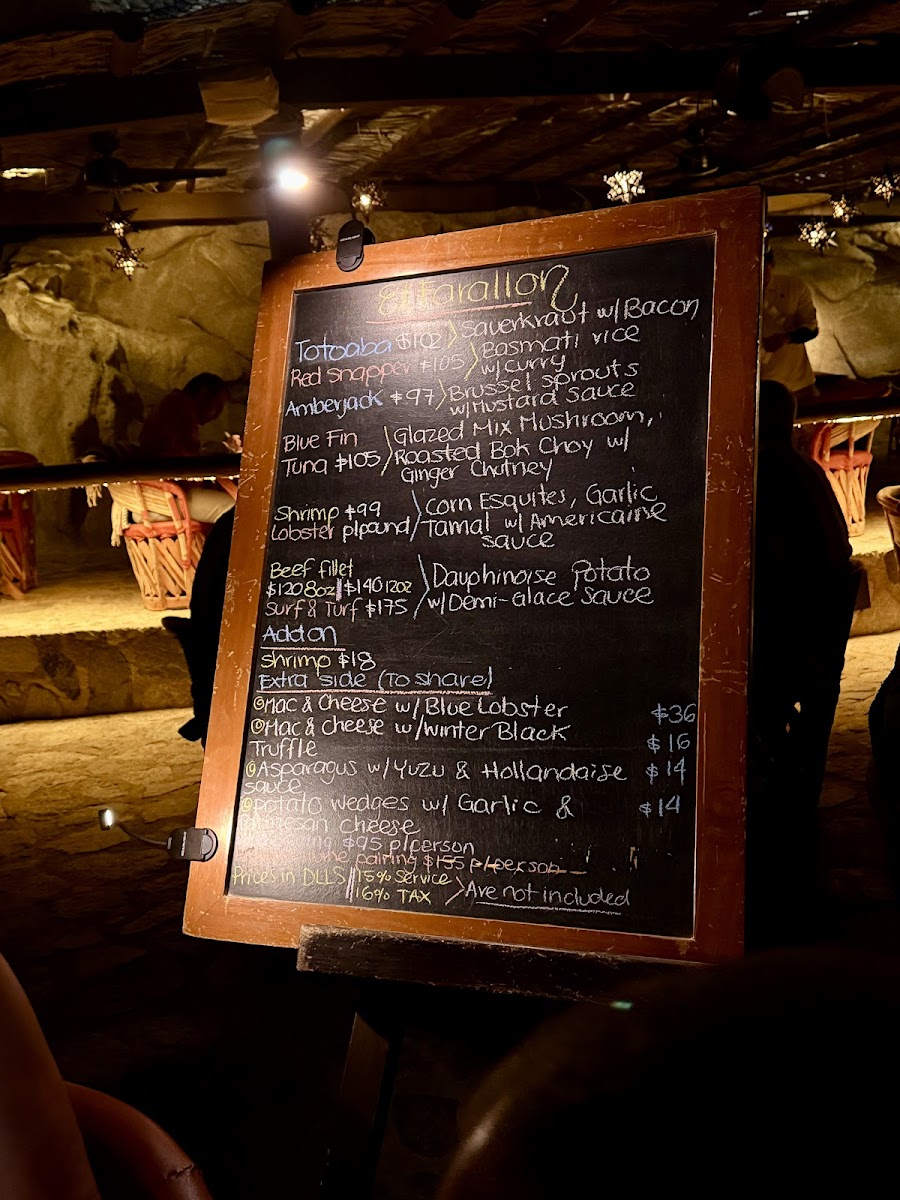 El Farallon
Totoaba $102 > Sauerkraut w/ Bacon
Red Snapper $105 > Basmati rice
w/ curry
Amberjack $97 > Brussel sprouts
w/ Mustard Sauce
Blue Fin
Tuna $105
Glazed Mix Mushroom,
Roasted Bok Choy w/
Ginger Chutney
Shrimp $99
Lobster p/pound
Corn Esquites, Garlic
Tamal w/ Americaine
sauce
Beef fillet
$120 8oz | $140 12oz
Surf & Turf $175
Dauphinoise Potato
w/ Demi-Glace Sauce
Add on
shrimp $18
Extra side (To share)
Mac & Cheese w/ Blue Lobster $36
Mac & Cheese w/ winter Black $16
Truffle
Asparagus w/ Yuzu & Hollandaise $14
sauce
Potato wedges w/ Garlic & $14
cheese
$95 p/person
pairing $155 p/person
Prices in DLLS | 15% Service
16% TAX > Are not included